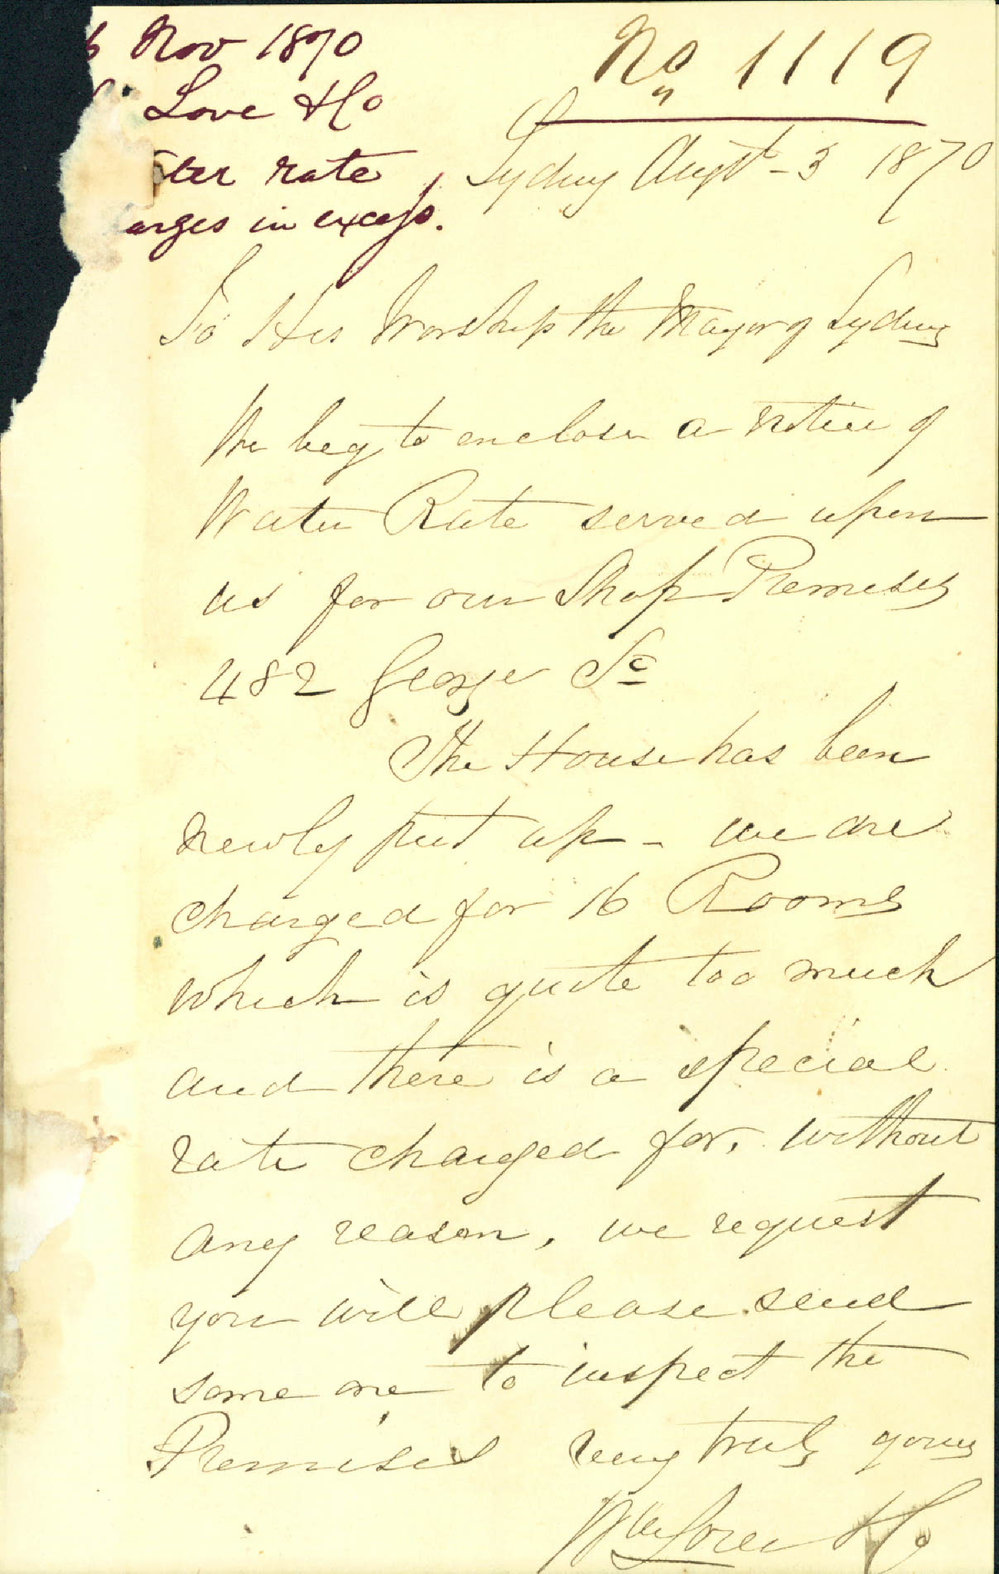 6 Nov 1870
Love & Co
ter rate
arges in excess.
No 1119
Sydney Augst - 3 1870
To His Worship the Mayor of Sydney
We beg to enclose a notice of
Water Rate served upon
us for our Shop Premises
482 George St
The House has been
newly put up - we are
charged for 16 Rooms
which is quite too much
and there is a special
rate charged for, without
any reason, we request
you will please send
some one to inspect the
Premises very truly yours
Wm Love & Co